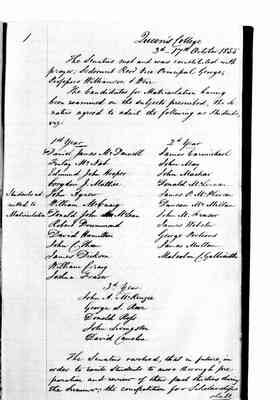 1
Queen's College
3d. 17th October 1855
The Senatus met and was constituted with
prayer; Sederunt Revd Vice Principal George,
Professors Williamson & Weir.
The Candidates for Matriculation having
been examined on the subjects prescribed, the Se-
natus agreed to admit the following as students,
viz:
1st Year
2nd Year
Daniel James McDannell
James Carmichael
Finlay McNab
John May
Edmund John Hooper
John Machar
Croydon J. Mattice
Donald McLennan
Students ad-
mitted to
Matriculate
John Agnew
James P. McPherson
William McGraig
Duncan McMillan
Donald John McLean
John M. Fraser
Robert Drummond
James Webster
David Hamilton
George Porteous
John C. Shaw
James Mullan
James Dickson
Malcolm C.
William Craig
Joshua Fraser
3rd Year
John A. McKenzie
George D.
Donald Ross
John Livingston
David Camelon
The Senatus resolved, that in future, in
order to excite students to more thorough pre-
paration and review of their past studies during
the Summer, the competition for Scholarships
shall